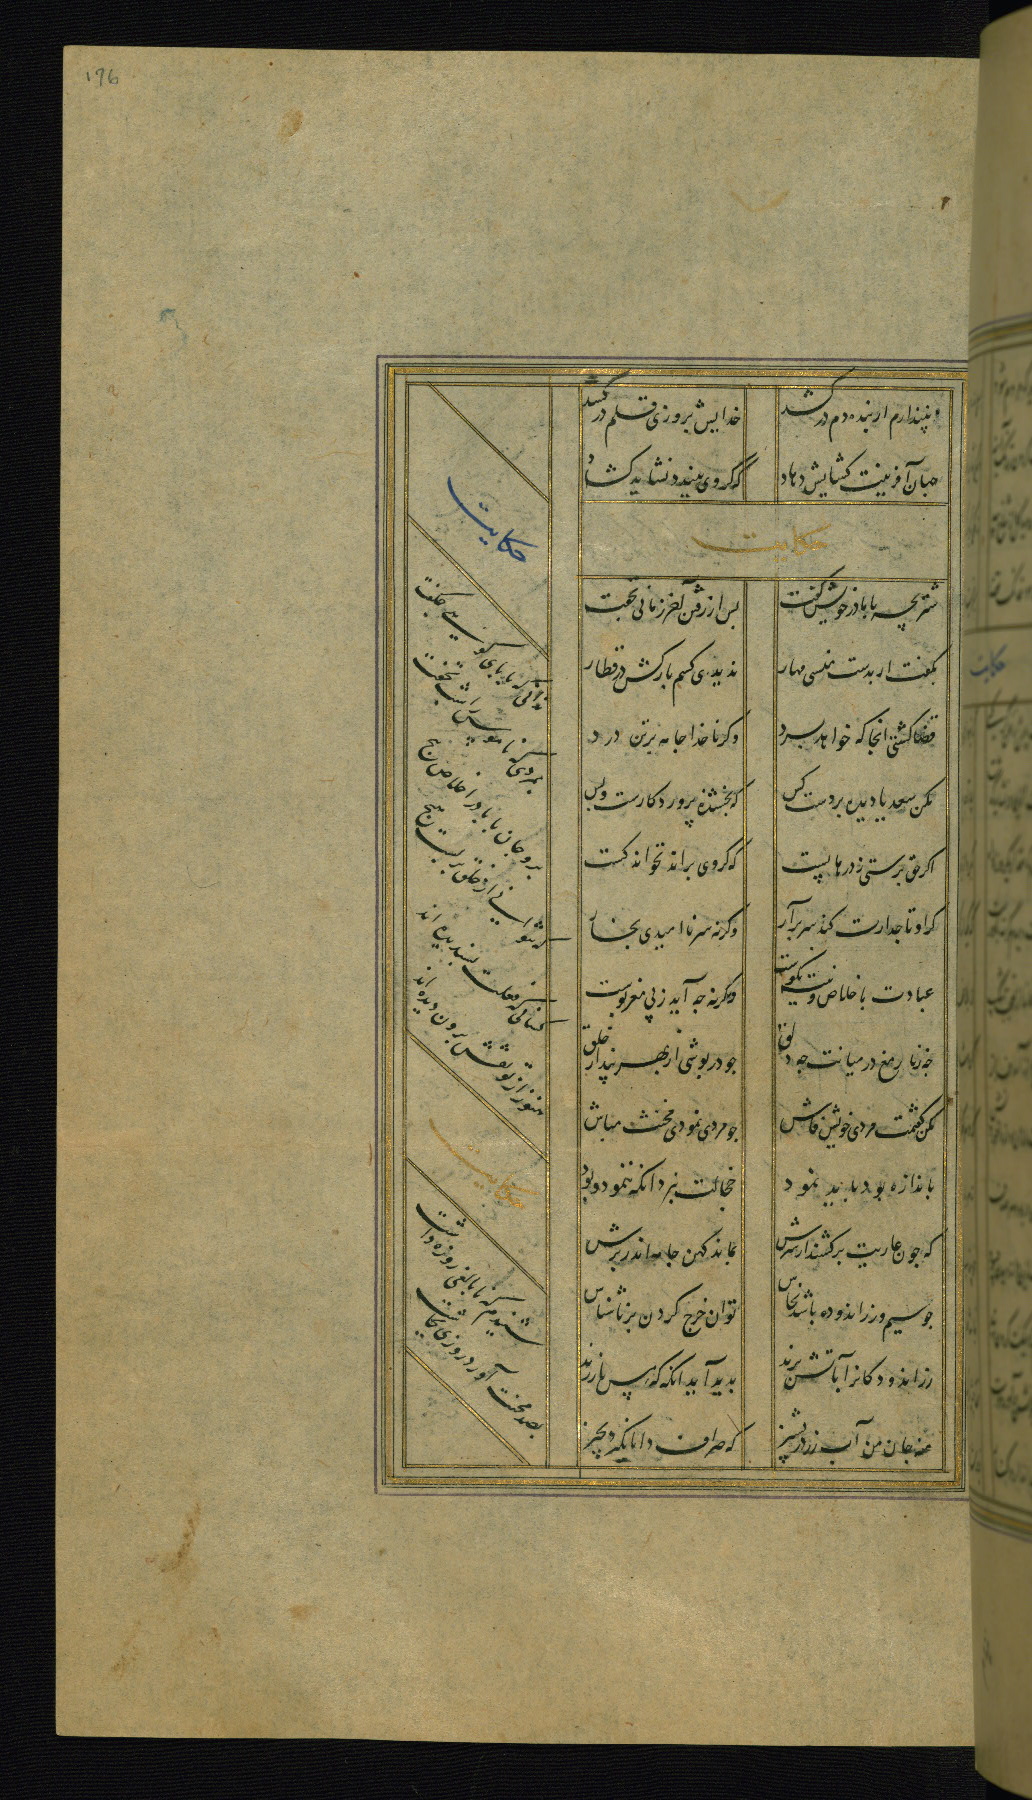 ۱۹۶
نپندارم ار بنده دم در کشد
خدایش بروزی قلم در کشد
جهان آفرینت کشایش دهاد
که گر وی ببندد نشاید کشاد
حکایت
شتر بچه با مادر خویش گفت
بس از رفتن آخر زمانی بخفت
بگفت ار بدست منستی مهار
ندیدی کسم بارکش در قطار
قضا کشتی انجا که خواهد برد
وگر ناخدا جامه بر تن درد
مکن سعدیا دیده بر دست کس
که بخشنده پروردکارست و بس
اکر حق پرستی ز درها بست
که گر وی براند نخواند کست
گر او تاجدارت کند سر برآر
وگرنه سر ناامیدی بخار
عبادت باخلاص نیت نکوست
وگرنه چه آید ز بی مغز پوست
چه زنار مغ در میانت چه دلق
چو در پوشی از بهر پندار خلق
مکن گفتمت مردی خویش فاش
چو مردی نمودی مخنث مباش
باندازه بود باید نمود
خجالت نبرد انکه ننمود و بود
که چون عاریت برکشند از سرش
نماید کهن جامه اندر برش
چو سیم و زر اندوده باشد نحاس
توان خرج کردن بر ناشناس
زر اندودکانرا بآتش برند
بدید آید انکه که مس یا زرند
منه جان من آب زر بر پشیز
که صراف دانا نگیرد بچیز
حکایت
ندانی که بابای کوهی چه گفت
بمردی که ناموس را شب نخفت
برو جان بابا در اخلاص پیچ
که نتوانی از خلق بربست هیچ
کسانی که فعلت پسندیده اند
هنوز از تو نقش برون دیده اند
حکایت
شنیدم که نابالغی روزه داشت
بصد محنت آورد روزی بچاشت